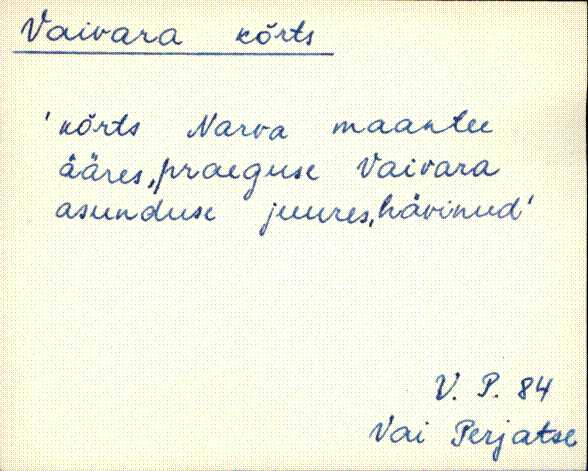 Vaivara kõrts
'kõrts Narva maantee
ääres, praeguse Vaivara
asunduse juures, hävinud'
V. P. 84
Vai Perjatse